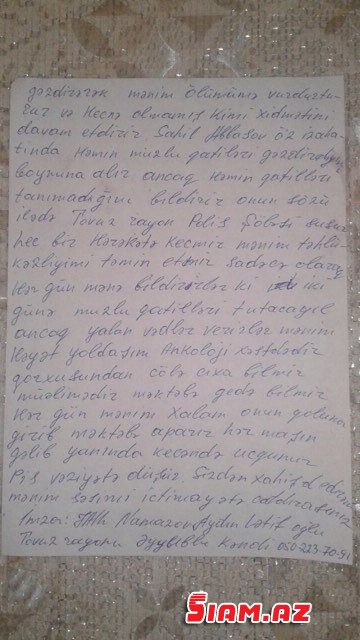 gəzdirərək mənim ölümümə vurdurtu-
rur və Heçnə olmamış kimi xidmətini
davam etdirir Sahil Abbasov öz izaha-
tında Həmin muzlu qatilləri gəzdirdiyini
boynuna alır ancaq Həmin qatilləri
tanımadığını bildirir onun sözü
ilədə Tovuz rayon Polis Şöbəsi susur
heç bir Hərəkətə Keçmir mənim təhlü-
kəsizliyimi təmin etmir sadəcə olaraq
Hər gün mənə bildirirlər ki iki
günə muzlu qatilləri tutacayıq
ancaq yalan vədlər verirlər mənim
Həyat yoldaşım Ankoloji xəstədir
qorxusundan çölə çıxa bilmir
müəllimədir məktəbə gedə bilmir
Hər gün mənim Xalam onun qoluna
girib məktəbə aparır hər maşın
gəlib yanında keçəndə uçunur
Pis vəziyətə düşür. Sizdən xahiş edirəm
mənim səsimi ictimayətə çatdırasınız
İmza: Namazov Aydın Lətif oğlu
Tovuz rayonu Əyyublu Kəndi 050-223-70-91
SIAM.AZ